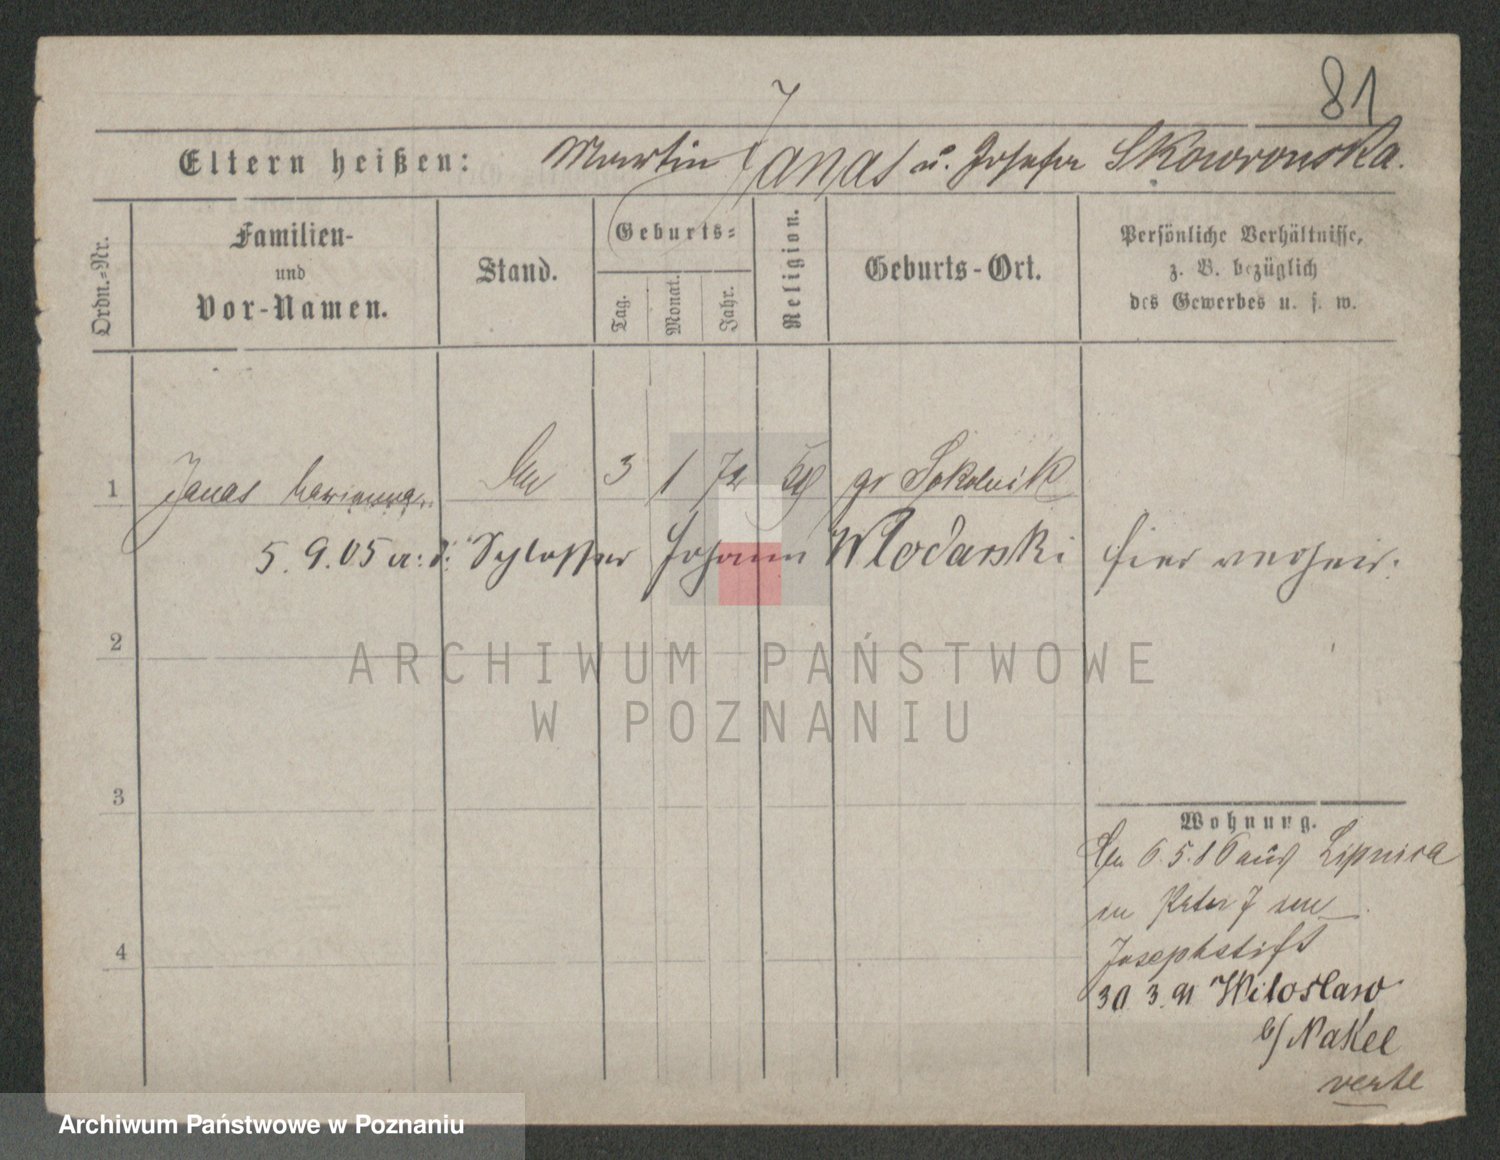 81
Eltern heißen: Martin Janas u. Josefa Skowronska.
Ordn.-Nr.
Familien-
und
Vor-Namen.
Stand.
Geburts-
Tag.
Monat.
Jahr.
Religion.
Geburts-Ort.
Persönliche Verhältnisse,
z. B. bezüglich
des Gewerbes u. s. w.
1 Janas Marianna 3 1 72 gr Sokolnik
5. 9. 05 Schlosser Johann Wlodarski hier verheir.
2
3
4
Wohnung.
6. 5. 86 aus Lipnica
Peter
Josephstift
30 3. 91 Witoslaw
b/ Nakel
verte
ARCHIWUM PAŃSTWOWE
W POZNANIU
Archiwum Państwowe w Poznaniu